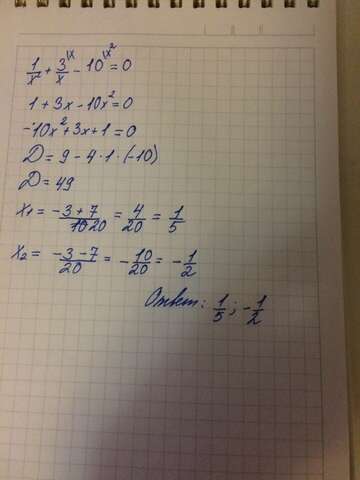 1/x² + 3/x \x - 10 \x² = 0
1 + 3x - 10x² = 0
-10x² + 3x + 1 = 0
D = 9 - 4 · 1 · (-10)
D = 49
x₁ = -3 + 7/20 = 4/20 = 1/5
x₂ = -3 - 7/20 = -10/20 = -1/2
Ответ: 1/5 ; -1/2